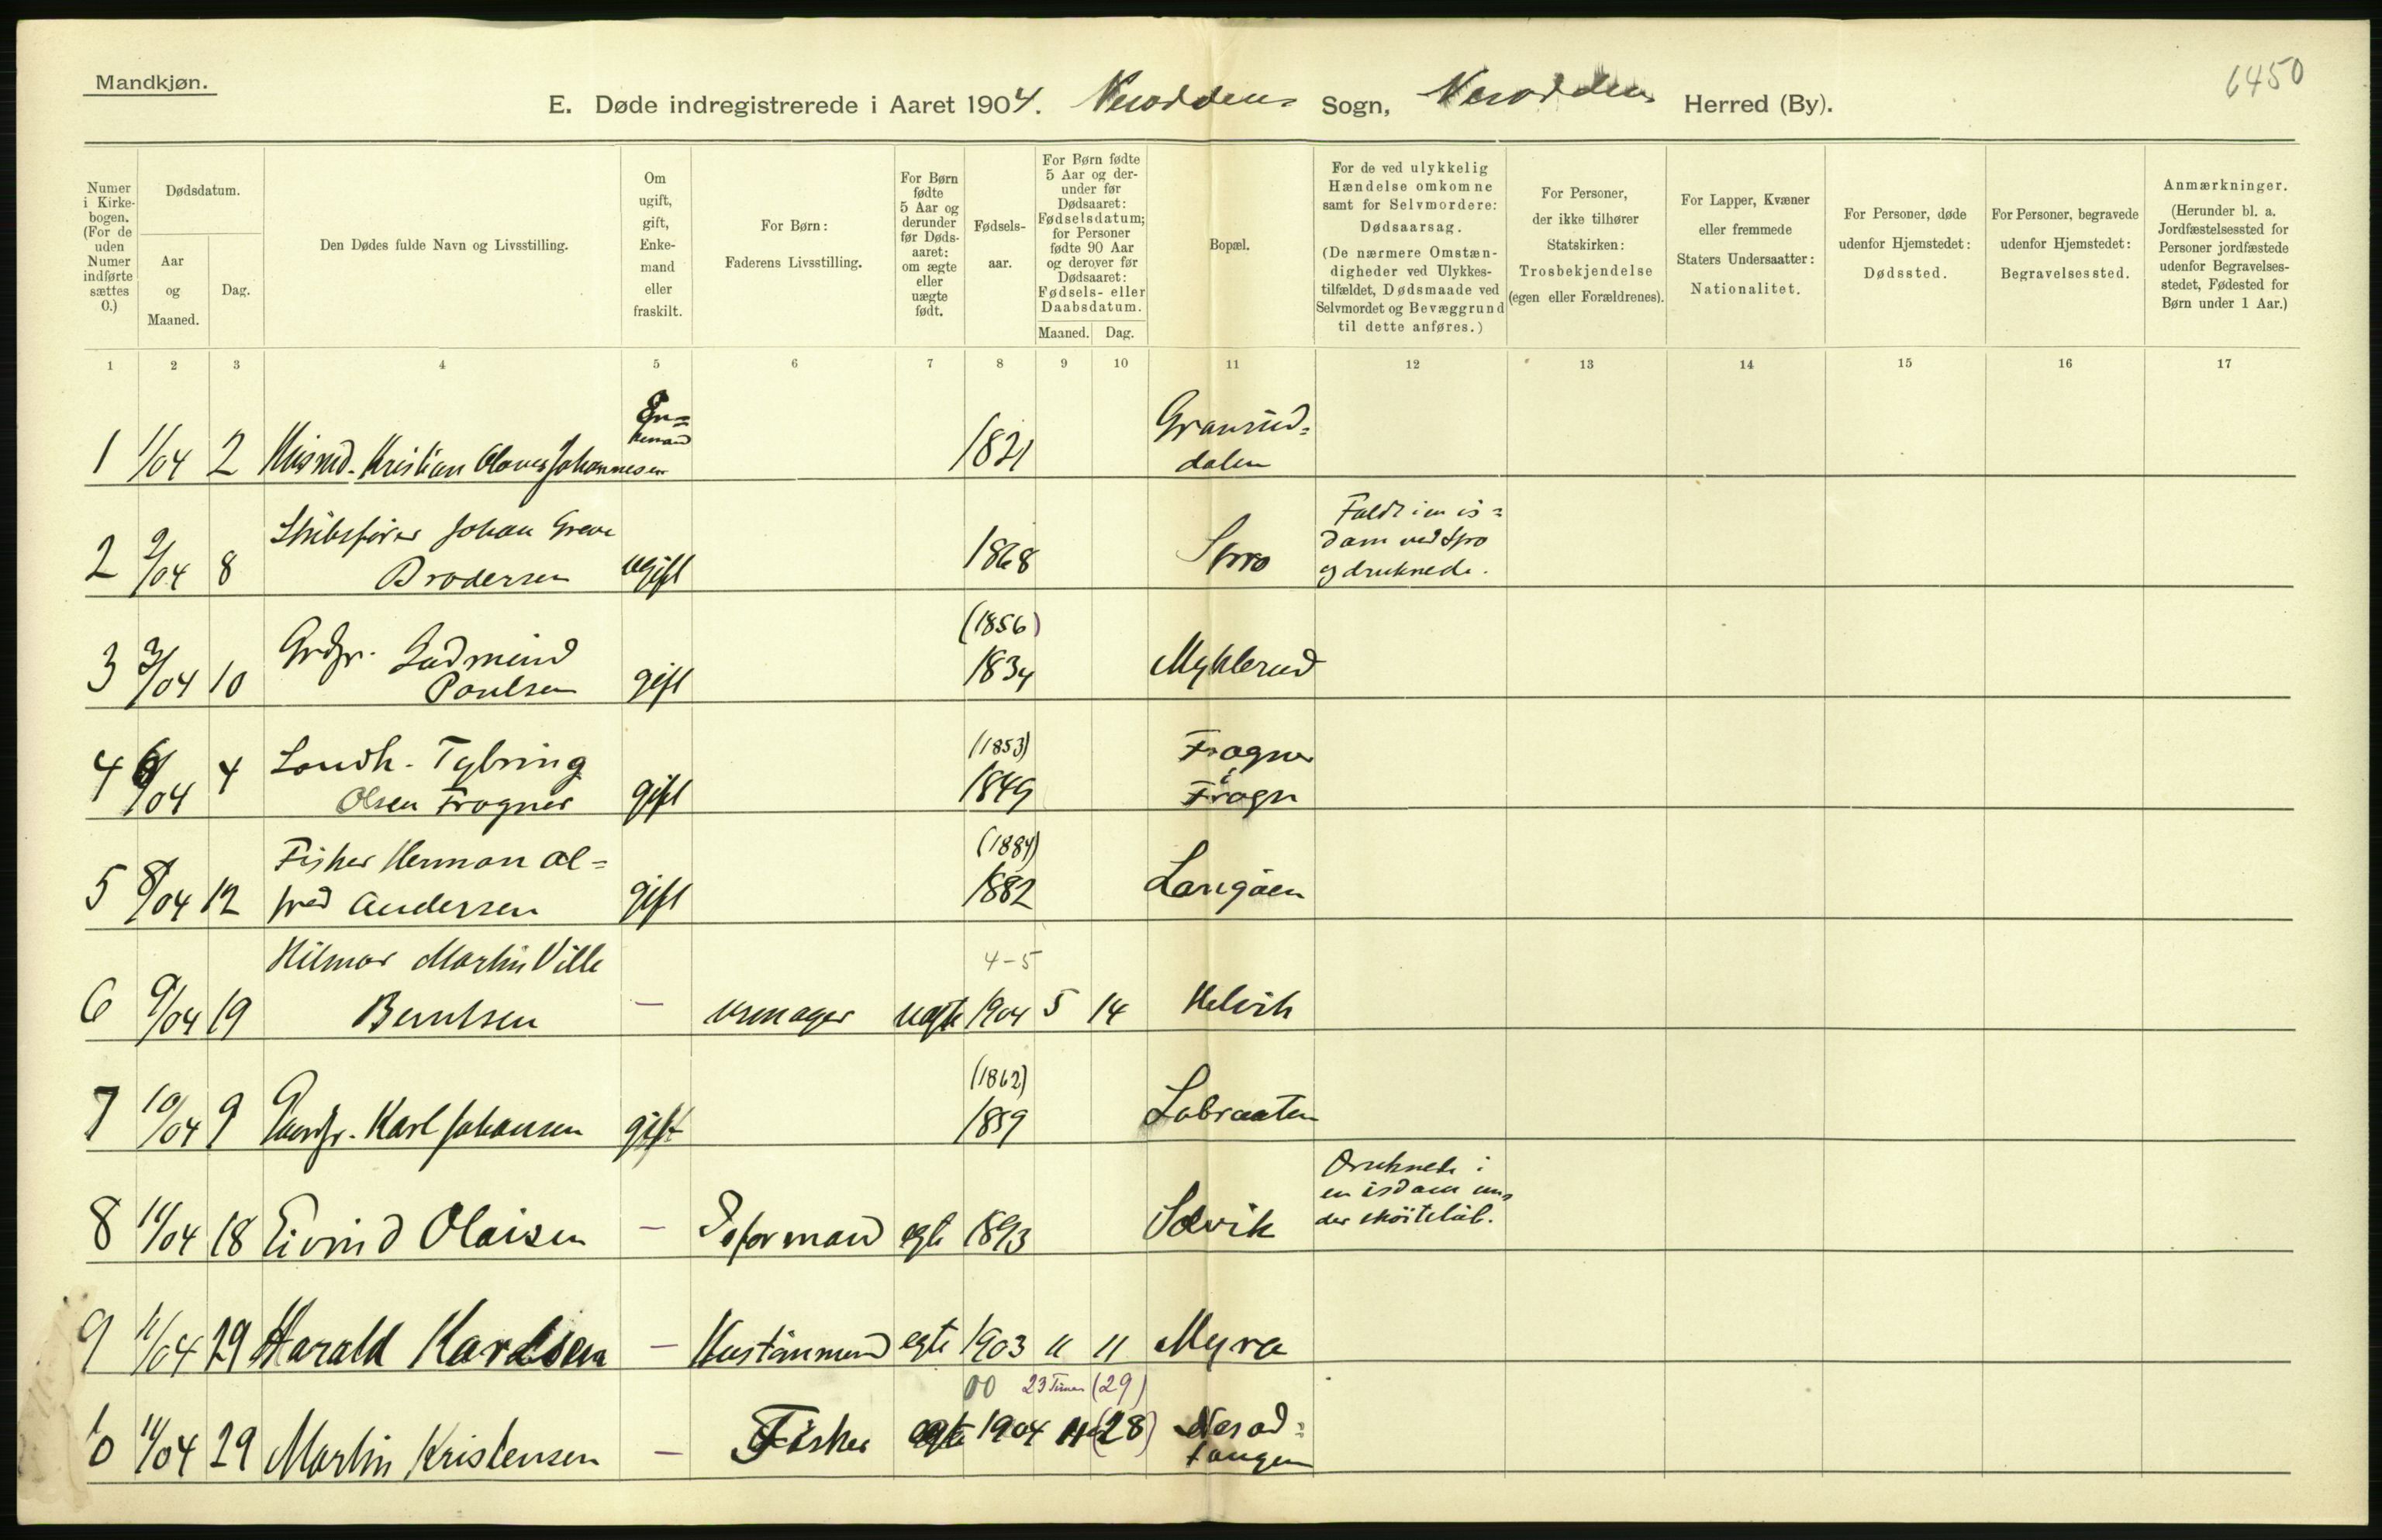 Mandkjøn.
6450
E. Døde indregistrerede i Aaret 1904. Nesoddens Sogn, Nesoddens Herred (By).
Numer i Kirke-bogen. (For de uden Numer indførte sættes 0.)
Dødsdatum.
Aar og Maaned.
Dag.
Den Dødes fulde Navn og Livsstilling.
Om ugift, gift, Enke-mand eller fraskilt.
For Børn:
Faderens Livsstilling.
For Børn fødte 5 Aar og derunder før Døds-aaret: om ægte eller uægte født.
Fødsels-aar.
For Børn fødte 5 Aar og der-under før Dødsaaret: Fødselsdatum; for Personer fødte 90 Aar og derover før Dødsaaret: Fødsels- eller Daabsdatum.
Maaned. Dag.
Bopæl.
For de ved ulykkelig Hændelse omkomne samt for Selvmordere: Dødsaarsag.
(De nærmere Omstæn-digheder ved Ulykkes-tilfældet, Dødsmaade ved Selvmordet og Bevæggrund til dette anføres.)
For Personer, der ikke tilhører Statskirken: Trosbekjendelse (egen eller Forældrenes).
For Lapper, Kvæner eller fremmede Staters Undersaatter: Nationalitet.
For Personer, døde udenfor Hjemstedet: Dødssted.
For Personer, begravede udenfor Hjemstedet: Begravelsessted.
Anmærkninger.
(Herunder bl. a. Jordfæstelsessted for Personer jordfæstede udenfor Begravelses-stedet, Fødested for Børn under 1 Aar.)
1 2 3 4 5 6 7 8 9 10 11 12 13 14 15 16 17
En=
kemand
Granrud=
1 1/04 2 Kristian Johannesen 1821
dalen
Faldt i en is=
Skibsfører Johan Greve
dam ved Spro
2 2/04 8 Brodersen ugift 1868 Spro
og druknede.
(1856)
Grdbr. Gudmund
3 3/04 10 Paulsen gift 1834 Myklerud
Landh. Tybring (1853) Frogner
i
4 6/04 4 Olsen Frogner gift 1849 Frogn
Fisker Herman Al= (1884)
5 8/04 12 fred Andersen gift 1882 Langøen
Hilmar Martin Ville 4-5
6 9/04 19 Berntsen — uægte 1904 5 14 Helvik
(1862)
7 10/04 9 Gaardbr. Karl Johansen gift 1859 Labraaten
Druknede i
en isdam un=
der skøiteløb.
8 11/04 18 Eivind Olaisen — Isformand egte 1893 Solvik
9 11/04 29 Harald Karlsen — Husmand egte 1903 11 11 Myra
00 23 Timer (29)
10 11/04 29 Martin Kristensen — Fisker egte 1904 11 (28) Nesod=
tangen